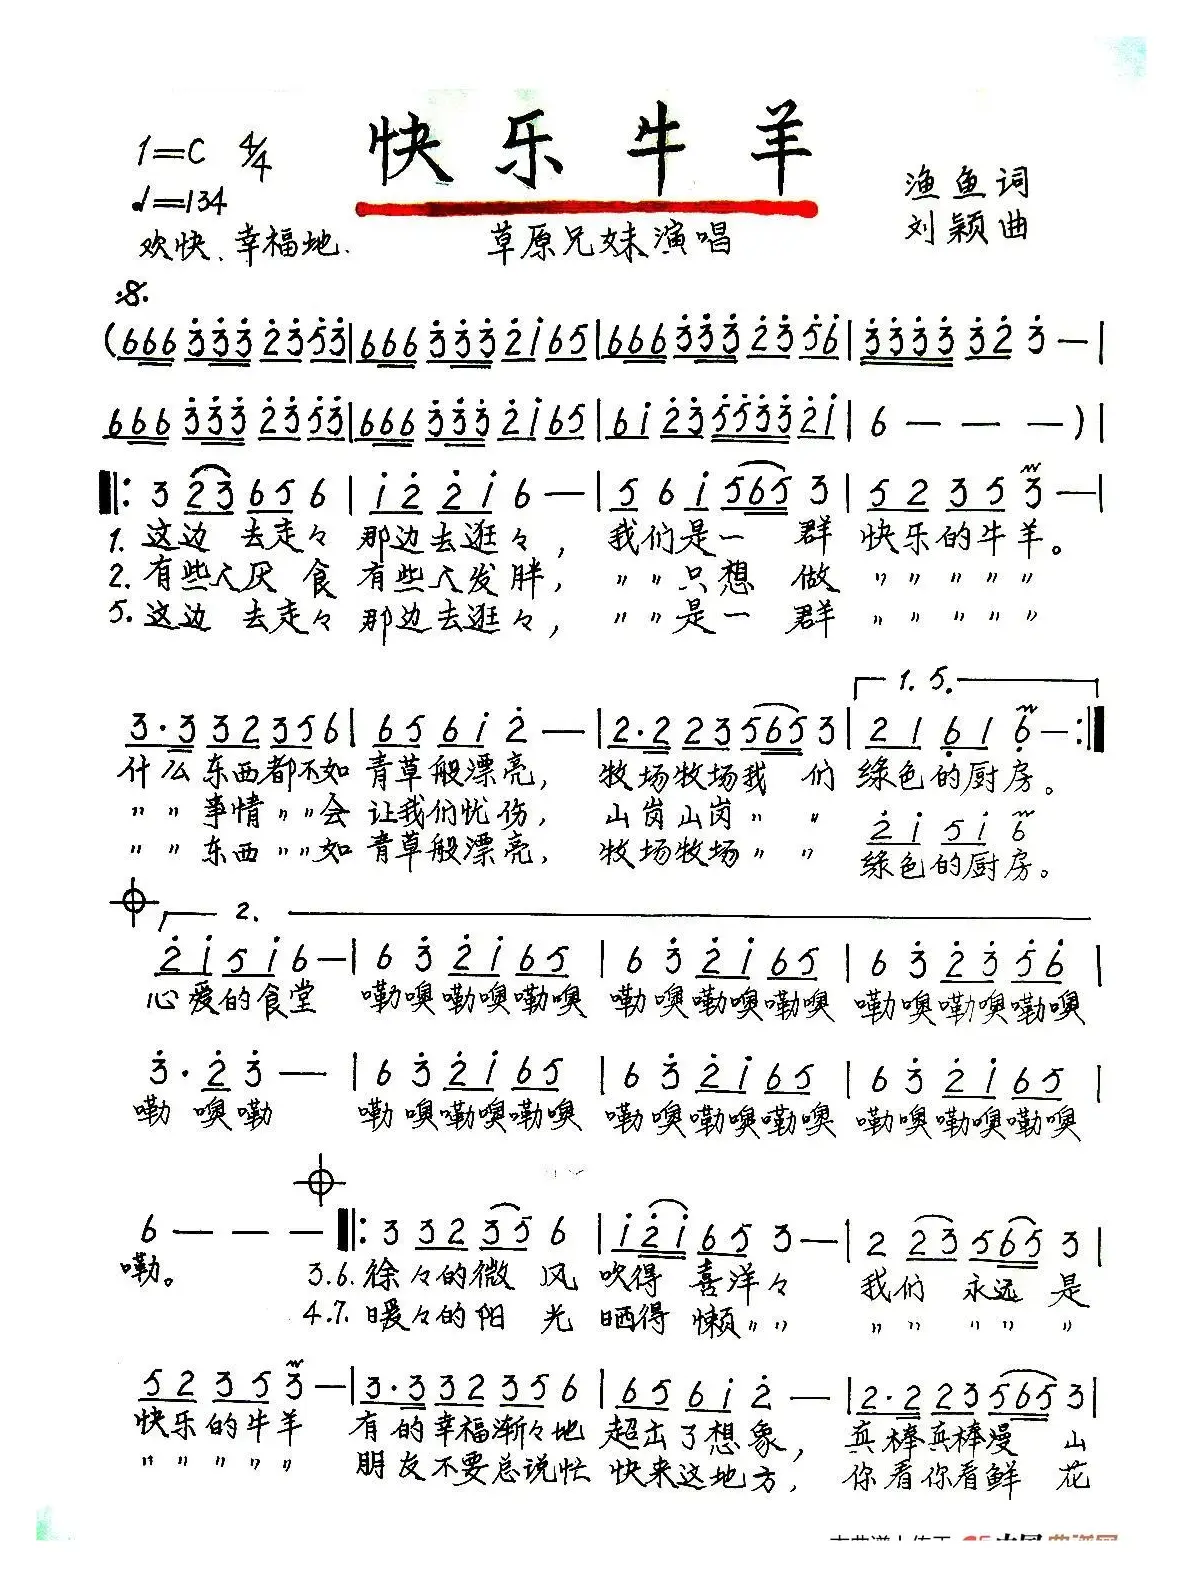 快乐牛羊
1=C 4/4
♩=134
欢快、幸福地.
草原兄妹演唱
渔鱼词
刘颖曲
(666 3̇3̇3̇ 2̇3̇5̇3̇|666 3̇3̇3̇ 2̇1̇65|666 3̇3̇3̇ 2̇3̇5̇6̇|3̇3̇3̇3̇ 3̇2̇ 3̇ —|
666 3̇3̇3̇ 2̇3̇5̇3̇|666 3̇3̇3̇ 2̇1̇65|61̇ 2̇3̇5̇5̇3̇3̇2̇1̇|6 — — —)|
‖: 3 23 65 6 | 1̇2̇ 2̇1̇ 6 —|5 6 1̇ 565 3 |52 35 3 —|
1. 这边 去走々 那边去逛々， 我们是一 群 快乐的牛羊。
2. 有些人厌 食 有些人发胖， 〃〃只想 做 〃〃〃〃〃
5. 这边 去走々 那边去逛々， 〃〃是一 群 〃〃〃〃〃
1. 5.
3·3 32 35 6|65 61̇ 2̇ —|2·2 23 565 3|21 6̣1 6̣ — :‖
什么 东西都不如 青草般漂亮， 牧场牧场我 们 绿色的厨房。
〃〃 事情〃〃会 让我们忧伤， 山岗山岗〃 〃
2̇1̇ 51̇ 6
〃〃 东西〃〃如 青草般漂亮， 牧场牧场〃 〃 绿色的厨房。
2.
2̇1̇ 51̇ 6 —|6 3̇ 2̇1̇ 65 | 6 3̇ 2̇1̇ 65 | 6 3̇ 2̇3̇ 5̇6̇ |
心爱的食堂 嘞噢嘞噢嘞噢 嘞噢嘞噢嘞噢 嘞噢嘞噢嘞噢
3̇· 2̇ 3̇ — |6 3̇ 2̇1̇ 65 | 6 3̇ 2̇1̇ 65 |6 3̇ 2̇1̇ 65 |
嘞 噢嘞 嘞噢嘞噢嘞噢 嘞噢嘞噢嘞噢 嘞噢嘞噢嘞噢
6 — — — ‖: 3 32 35 6 |1̇2̇1̇ 65 3 —|2 23 565 3 |
嘞。 3.6. 徐々的微 风 吹得 喜洋々 我们 永远 是
4.7. 暖々的阳 光 晒得 懒〃〃 〃〃 〃〃 〃
52 35 3 —|3·3 32 35 6 |65 61̇ 2̇ — |2·2 23 565 3|
快乐的牛羊 有的幸福渐々地 超出了想象， 真棒真棒漫 山
〃〃〃〃〃 朋友不要总说忙 快来这地方， 你看你看鲜 花